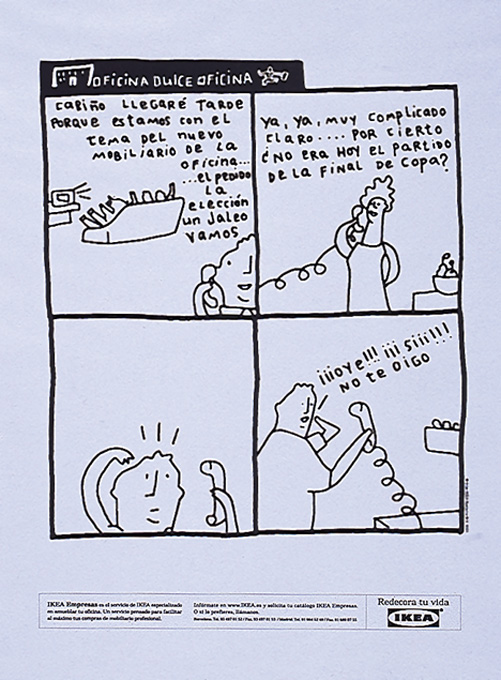 OFICINA DULCE OFICINA
CARIÑO LLEGARÉ TARDE
PORQUE ESTAMOS CON EL
TEMA DEL NUEVO
MOBILIARIO DE LA
OFICINA...
...EL PEDIDO
LA
ELECCIÓN
UN JALEO
VAMOS
YA, YA, MUY COMPLICADO
CLARO.... POR CIERTO
¿NO ERA HOY EL PARTIDO
DE LA FINAL DE COPA?
¡¡¡OYE!!! ¡¡¡SIII!!!
NO TE OIGO
IKEA Empresas es el servicio de IKEA especializado
en amueblar tu oficina. Un servicio pensado para facilitar
al máximo tus compras de mobiliario profesional.
Infórmate en www.IKEA.es y solicita tu catálogo IKEA Empresas.
O si lo prefieres, llámanos.
Redecora tu vida
IKEA